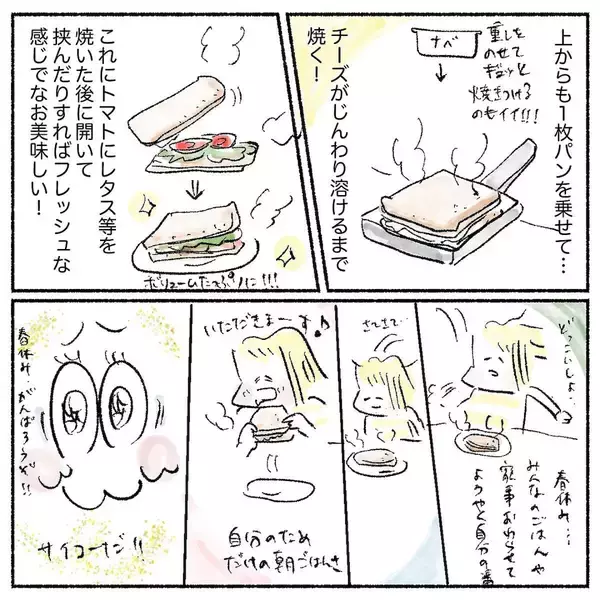 上からも1枚パンを乗せて…
ナベ
重しを
のせて
ギュッと
焼きつける
のもイイ!!!
チーズがじんわり溶けるまで
焼く!
これにトマトにレタス等を
焼いた後に開いて
挟んだりすればフレッシュな
感じでなお美味しい!
ボリュームたっぷりに!!!
どっこいしょ…
春休み…
みんなのごはんや
家事おわらせて
ようやく自分の番
さてさて…
いただきまーーす♪
自分のため
だけの朝ごはんさ
春休み…がんばろうぜ!!
サイコーだ!!